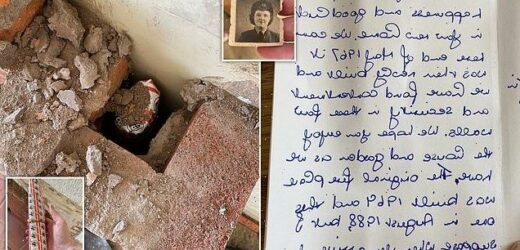 happiness and good luck
in your new home. We came
here end of May 1967 it
was then newly built and
we have found contentment
and security in these four
walls. We hope you enjoy
the house and garden as we
have. The original fire place
was built 1969 and this
one in August 1988 but